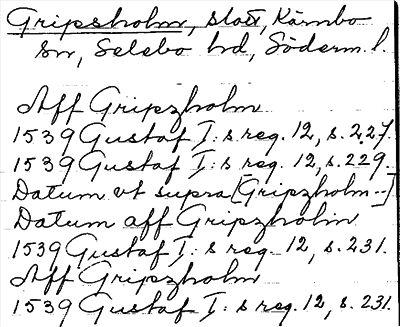 Gripsholm, slott, Kärnbo
sn, Selebo hd, Söderm. l.
Aff Gripzholm
1539 Gustaf I:s reg. 12, s. 227.
1539 Gustaf I:s reg. 12, s. 229.
Datum vt supra [Gripzholm--]
Datum aff Gripzholm
1539 Gustaf I:s reg. 12, s. 231.
Aff Gripzholm
1539 Gustaf I:s reg. 12, s. 231.